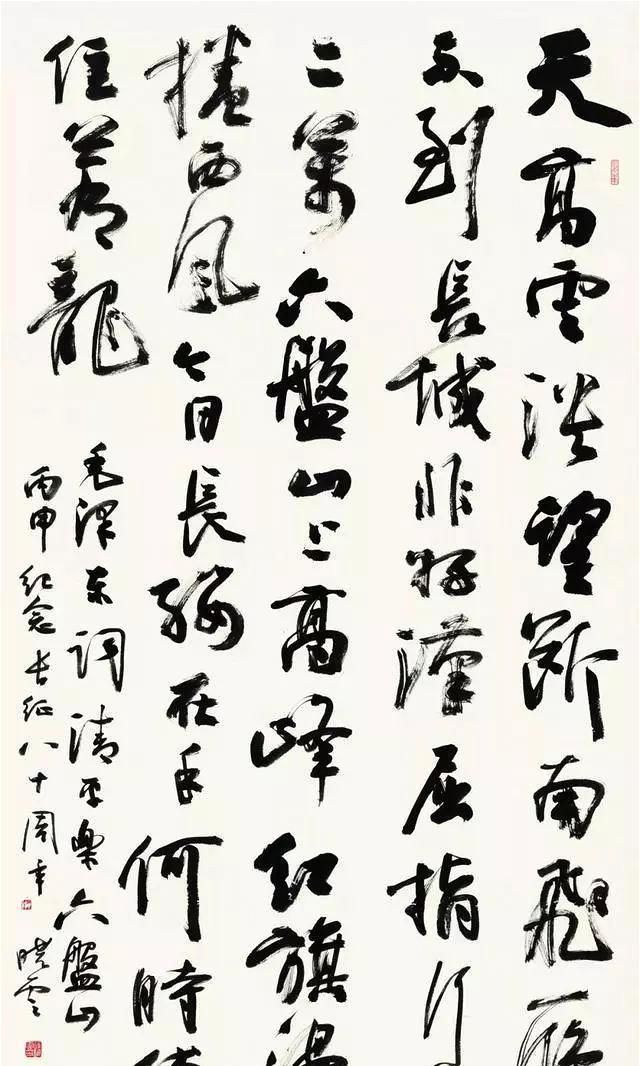 天高雲淡望斷南飛雁
不到長城非好漢屈指行
二萬六盤山上高峰紅旗漫
捲西風今日長纓在手何時縛
住蒼龍
毛澤東詞清平樂六盤山
丙申紀念長征八十周年
曉雲